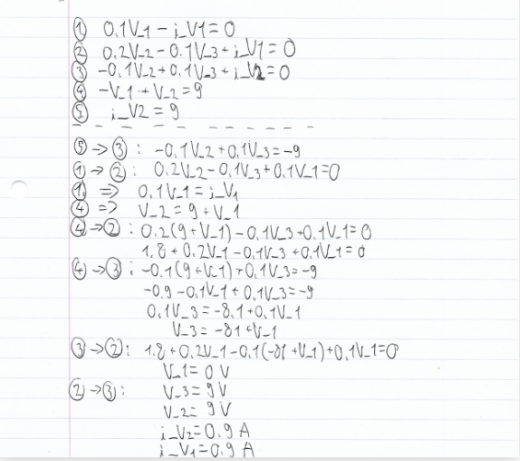 ① 0.1V_1 - i_V1 = 0
② 0.2V_2 - 0.1V_3 + i_V1 = 0
③ -0.1V_2 + 0.1V_3 + i_V2 = 0
④ -V_1 + V_2 = 9
⑤ i_V2 = 9
⑤ → ③ : -0.1V_2 + 0.1V_3 = -9
① → ② : 0.2V_2 - 0.1V_3 + 0.1V_1 = 0
① => 0.1V_1 = i_V1
④ => V_2 = 9 + V_1
④ → ② : 0.2(9 + V_1) - 0.1V_3 + 0.1V_1 = 0
1.8 + 0.2V_1 - 0.1V_3 + 0.1V_1 = 0
④ → ③ : -0.1(9 + V_1) + 0.1V_3 = -9
-0.9 - 0.1V_1 + 0.1V_3 = -9
0.1V_3 = -8.1 + 0.1V_1
V_3 = -81 + V_1
③ → ② : 1.8 + 0.2V_1 - 0.1(-81 + V_1) + 0.1V_1 = 0
V_1 = 0 V
② → ③ : V_3 = 9 V
V_2 = 9 V
i_V2 = 0.9 A
i_V1 = 0.9 A